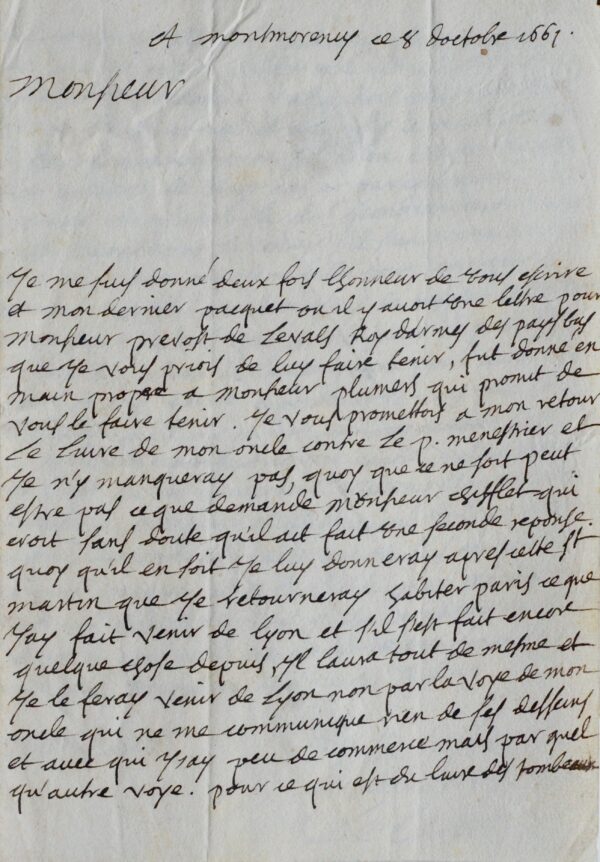 A Montmorency ce 8 doctobre 1661.
Monsieur
Je me suis donné deux fois lhonneur de vous escrire
et mon dernier pacquet ou il y avoit une lettre pour
Monsieur prevost de Levals Roy darmes des pays bas
que Je vous priois de luy faire tenir, fut donné en
main propre a monsieur plumers qui promit de
vous le faire tenir. Je vous promettois a mon retour
Le Livre de mon oncle contre Le p. menestrier et
Je n'y manqueray pas, quoy que ce ne soit peut
estre pas ce que demande Monsieur chifflet qui
croit sans doute qu'il ait fait une seconde reponse.
quoy qu'il en soit Je luy donneray apres cette st
martin que Je retourneray habiter paris ce que
Jay fait venir de Lyon et s'il s'est fait encore
quelque chose depuis, Jl laura tout de mesme et
Je le feray venir de Lyon non par la voye de mon
oncle qui ne me communique rien de ses desseins
et avec qui Jay peu de commerce mais par quel
qu'autre voye. pour ce qui est du livre des tombeaux